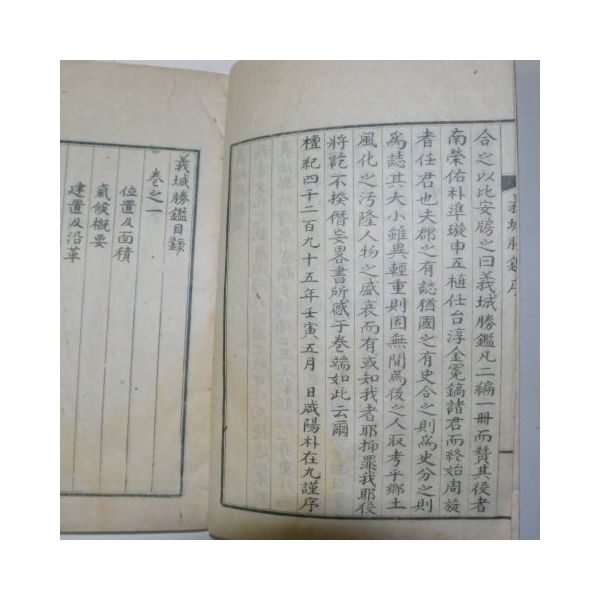 合之以比安牓之曰義城勝鑑凡二編一冊而贊其役者
南榮佑朴準璇申五植任台淳金冕鎬諸君而終始周旋
者任君也夫郡之有誌猶國之有史合之則爲史分之則
爲誌其大小雖異輕重則固無間爲後之人取考乎鄕土
風化之汚隆人物之盛衰而有或知我者耶抑罪我耶役
將訖不揆僭妄畧書所感于卷端如此云爾
檀紀四千二百九十五年壬寅五月 日咸陽朴在九謹序
義城勝鑑序
義城勝鑑目錄
卷之一
位置及面積
氣候槪要
建置及沿革